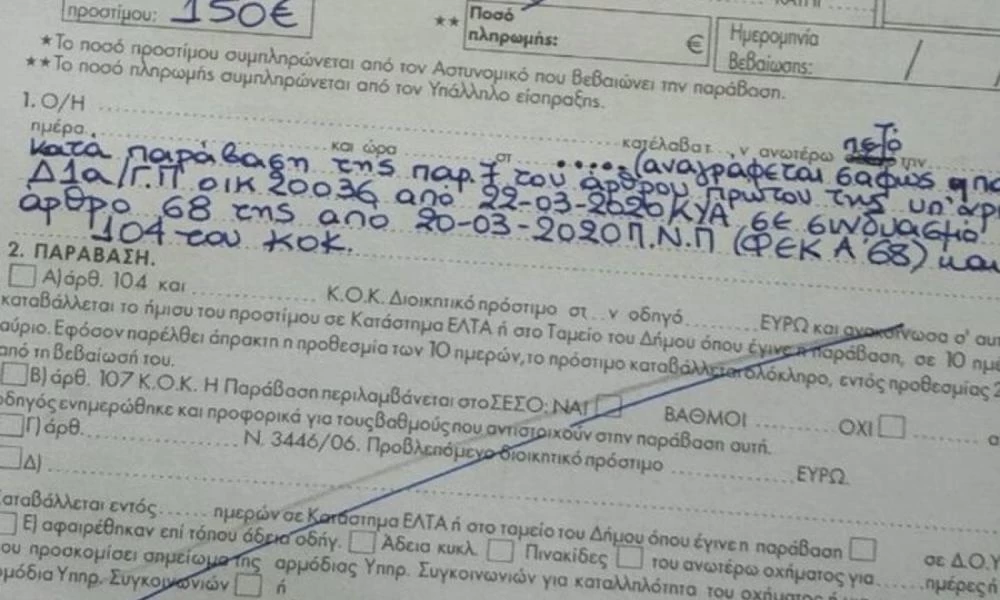 προστίμου: 150€
** Ποσό πληρωμής: €
Ημερομηνία Βεβαίωσης: / /
*Το ποσό προστίμου συμπληρώνεται από τον Αστυνομικό που Βεβαιώνει την παράβαση.
**Το ποσό πληρωμής συμπληρώνεται από τον Υπάλληλο είσπραξης.
1. Ο/Η
ημέρα και ώρα στ κατέλαβατ..ν ανωτέρω πεζό την
κατά παράβαση της παρ. 7 του άρθρου πρώτου της υπ' αρι
(αναγράφεται σαφώς η πα
Δ1α/Γ.Π οικ 20036 από 22-03-2020 ΚΥΑ σε συνδυασμό
άρθρο 68 της από 20-03-2020 Π.Ν.Π (ΦΕΚ Α' 68) και
104 του ΚΟΚ.
2. ΠΑΡΑΒΑΣΗ.
Α) άρθ. 104 και Κ.Ο.Κ. Διοικητικό πρόστιμο στ..ν οδηγό ΕΥΡΩ και ανακοίνωσα σ' αυτ
καταβάλλεται το ήμισυ του προστίμου σε Κατάστημα ΕΛΤΑ ή στο Ταμείο του Δήμου όπου έγινε η παράβαση, σε 10 ημέ
αύριο. Εφόσον παρέλθει άπρακτη η προθεσμία των 10 ημερών, το πρόστιμο καταβάλλεται ολόκληρο, εντός προθεσμίας
από τη βεβαίωσή του.
Β) άρθ. 107 Κ.Ο.Κ. Η Παράβαση περιλαμβάνεται στο ΣΕΣΟ: ΝΑΙ ΒΑΘΜΟΙ ΟΧΙ
οδηγός ενημερώθηκε και προφορικά για τους βαθμούς που αντιστοιχούν στην παράβαση αυτή.
Γ) άρθ. Ν. 3446/06. Προβλεπόμενο διοικητικό πρόστιμο ΕΥΡΩ.
Δ)
καταβάλλεται εντός ημερών σε Κατάστημα ΕΛΤΑ ή στο ταμείο του Δήμου όπου έγινε η παράβαση σε Δ.Ο.Υ
Ε) αφαιρέθηκαν επί τόπου άδεια οδήγ. Άδεια κυκλ. Πινακίδες του ανωτέρω οχήματος για ημέρες ή
ου προσκομίσει σημείωμα της αρμόδιας Υπηρ. Συγκοινωνιών για καταλληλότητα του οχήματος ή
ρμόδια Υπηρ. Συγκοινωνιών ή